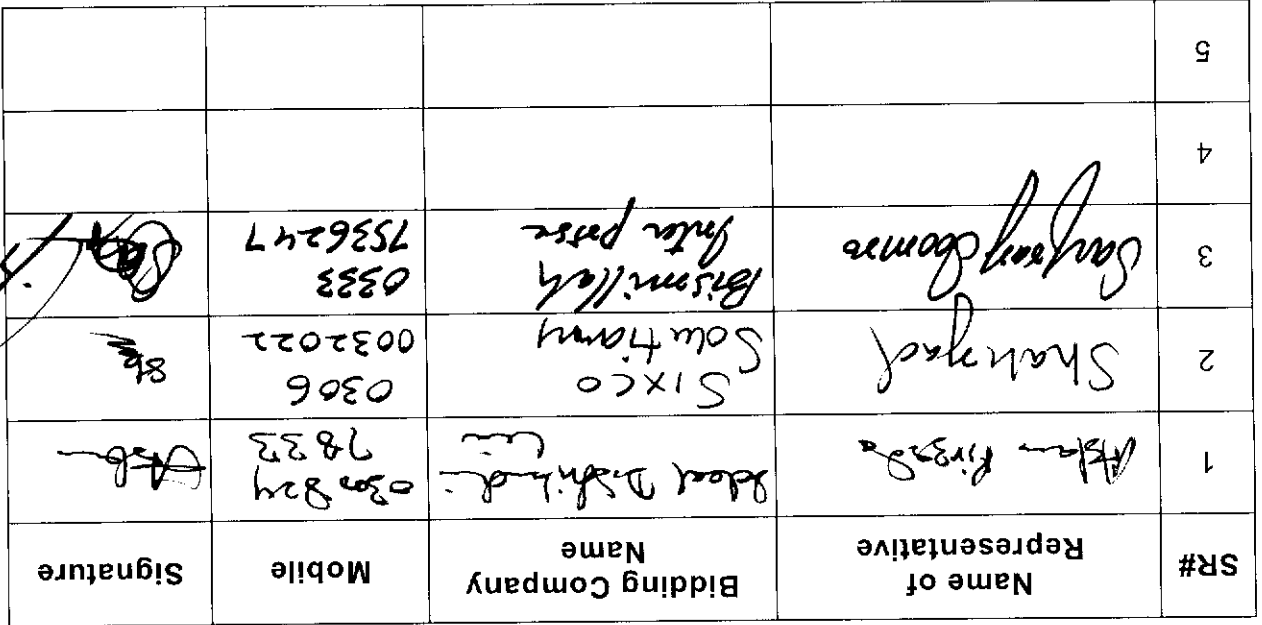 SR#
Name of
Representative
Bidding Company
Name
Mobile
Signature
1
Aslam Pirzada
Ideal Distributi
0300 824
7833
2
Shahzad
Sixco
Solutions
0306
0032022
3
Sarfraz Soomro
Bismillah
Inter prise
0333
7536247
4
5